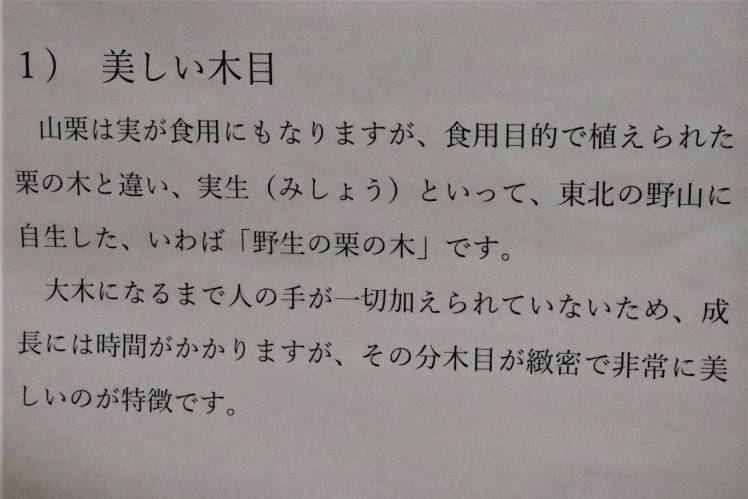 １）　美しい木目
山栗は実が食用にもなりますが、食用目的で植えられた
栗の木と違い、実生（みしょう）といって、東北の野山に
自生した、いわば「野生の栗の木」です。
大木になるまで人の手が一切加えられていないため、成
長には時間がかかりますが、その分木目が緻密で非常に美
しいのが特徴です。